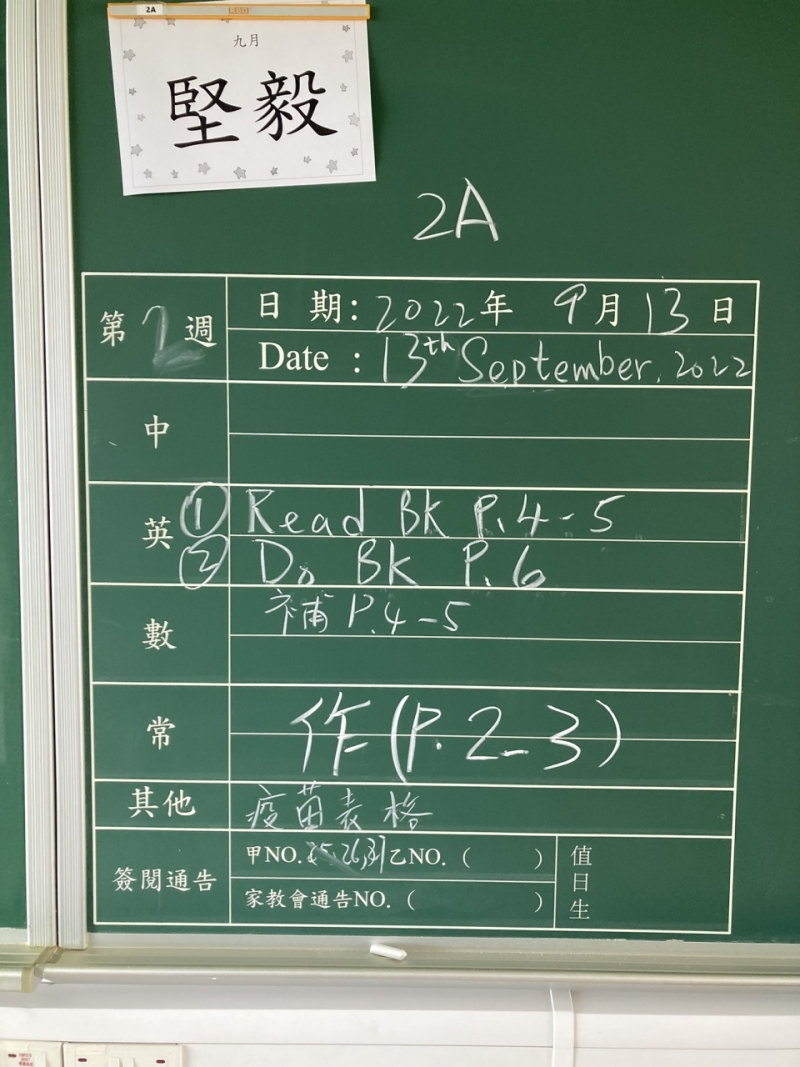 2A
九月
堅毅
2A
第2週
日期：2022年 9月13日
Date : 13th September, 2022
中
英
① Read BK P.4-5
② Do BK P.6
數
補P.4-5
常
作(P.2-3)
其他
疫苗表格
簽閱通告
甲NO. 25,26,31 乙NO. ( )
家教會通告NO. ( )
值日生